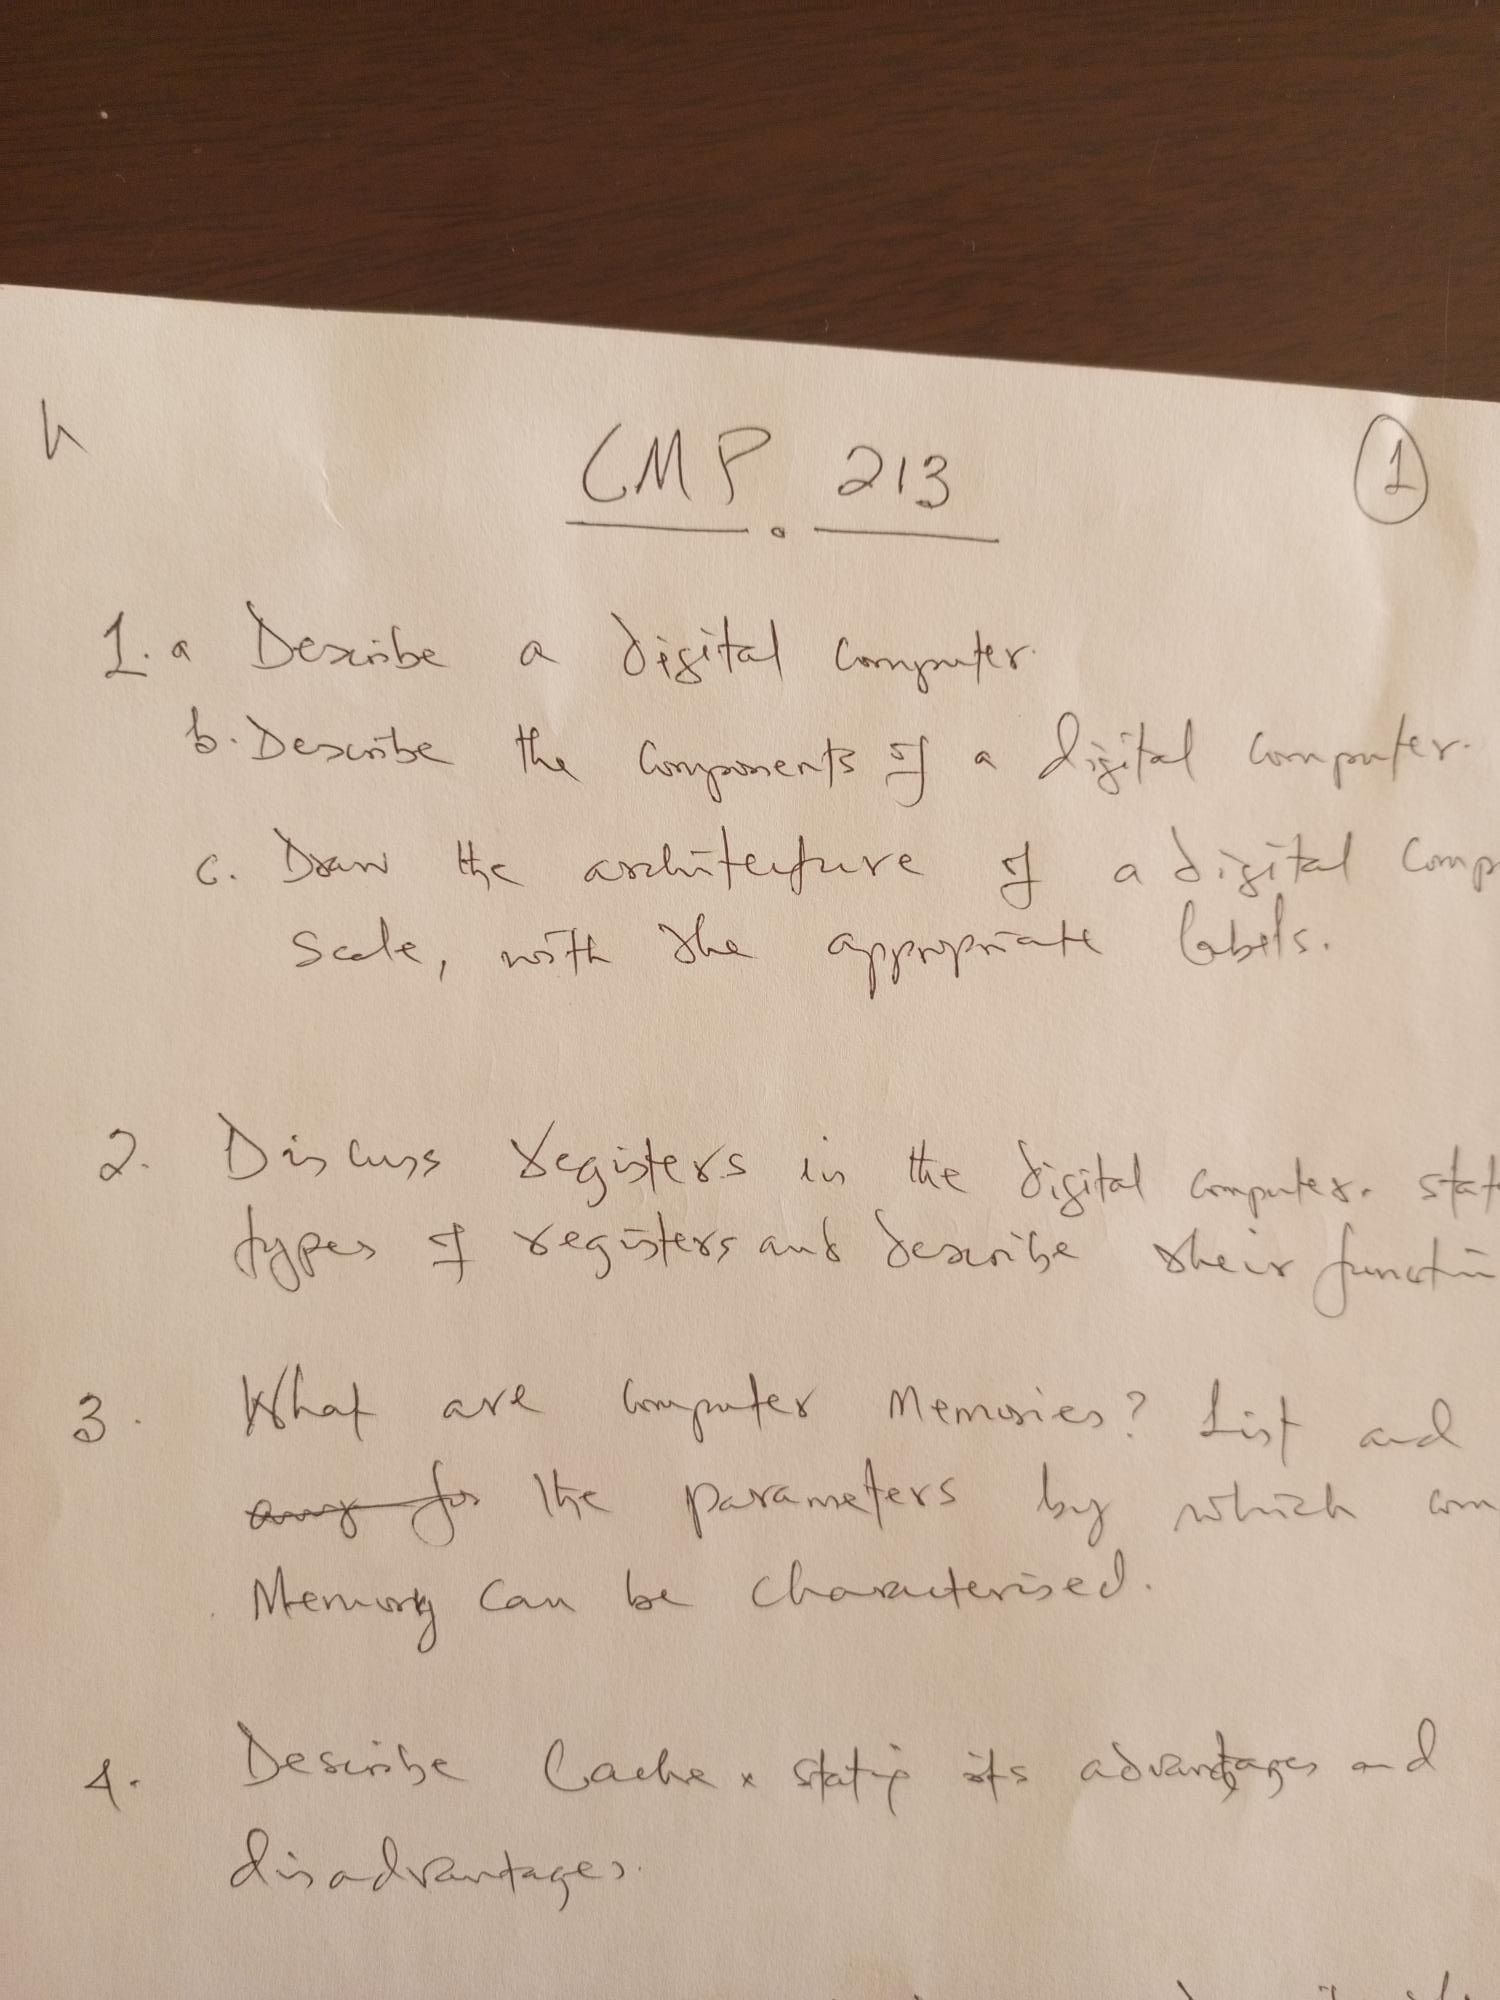 CMP. 213
1
1. a Describe a digital computer.
b. Describe the components of a digital computer.
c. Draw the architecture of a digital comp
scale, with the appropriate labels.
2. Discuss registers in the digital computer. stat
types of registers and describe their functi
3. What are computer Memories? List and
any for the parameters by which com
Memory can be characterised.
4. Describe Cache stating its advantages and
disadvantages.